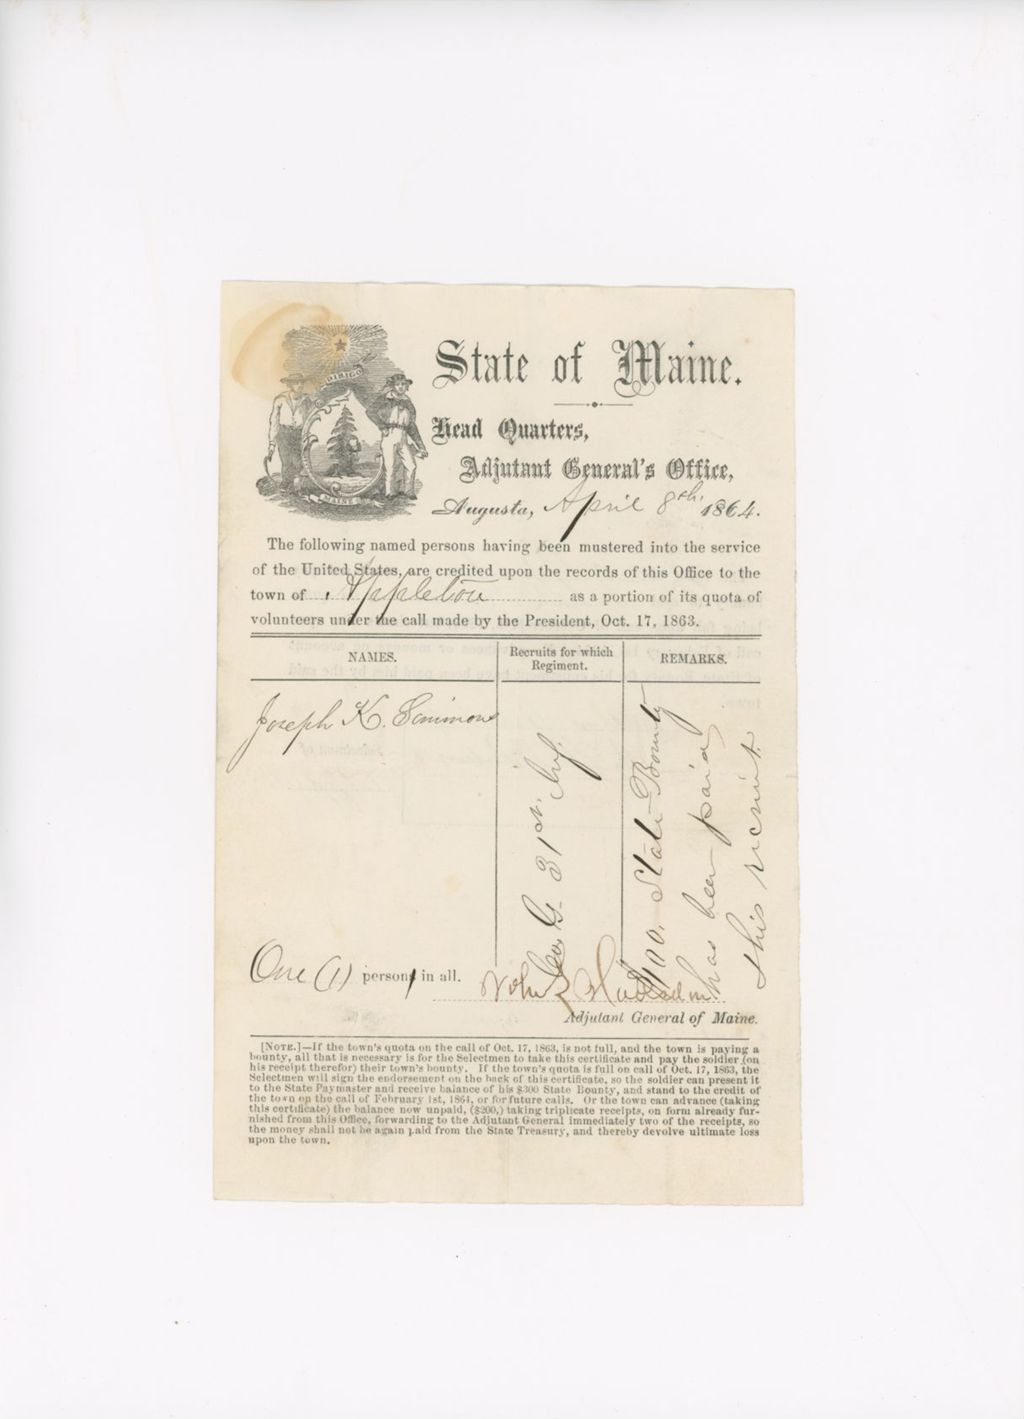 DIRIGO
MAINE
State of Maine.
Head Quarters,
Adjutant General's Office,
Augusta, April 8th, 1864.
The following named persons having been mustered into the service
of the United States, are credited upon the records of this Office to the
town of Appleton as a portion of its quota of
volunteers under the call made by the President, Oct. 17, 1863.
NAMES.
Recruits for which
Regiment.
REMARKS.
Joseph K. Simmons
Co. G. 31st. Inf.
$100. State Bounty
has been paid
this recruit.
One (1) person, in all.
John L Hodsdon
Adjutant General of Maine.
[NOTE.]—If the town's quota on the call of Oct. 17, 1863, is not full, and the town is paying a
bounty, all that is necessary is for the Selectmen to take this certificate and pay the soldier (on
his receipt therefor) their town's bounty. If the town's quota is full on call of Oct. 17, 1863, the
Selectmen will sign the endorsement on the back of this certificate, so the soldier can present it
to the State Paymaster and receive balance of his $300 State Bounty, and stand to the credit of
the town on the call of February 1st, 1864, or for future calls. Or the town can advance (taking
this certificate) the balance now unpaid, ($200,) taking triplicate receipts, on form already fur-
nished from this Office, forwarding to the Adjutant General immediately two of the receipts, so
the money shall not be again paid from the State Treasury, and thereby devolve ultimate loss
upon the town.